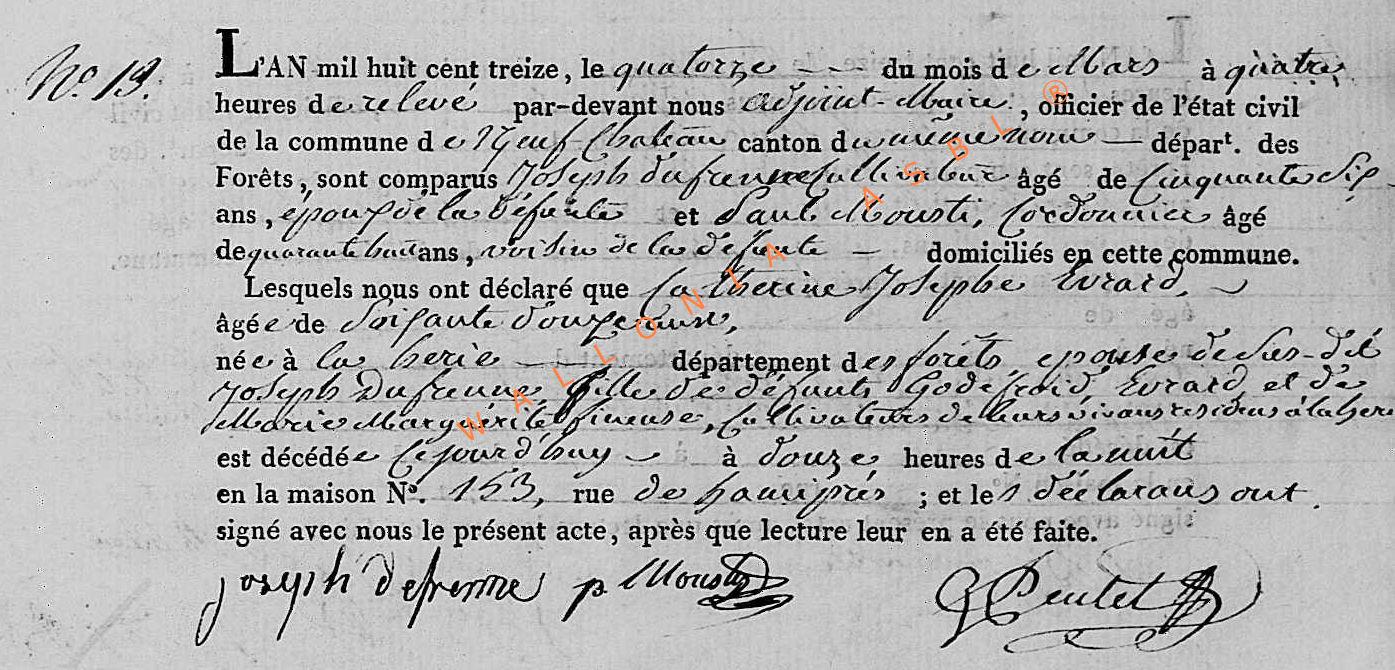 No. 13.
L'AN mil huit cent treize, le quatorze - - du mois de Mars à quatre
heures de relevé par-devant nous adjoint-Maire, officier de l'état civil
de la commune de Neuf-Chateau canton du même nom - départ. des
Forêts, sont comparus Joseph dufrenne Cultivateur âgé de Cinquante Six
ans, epoux de la Défunte et Paul Mousti, Cordonnier âgé
de quarante huit ans, voisin de la defunte - domiciliés en cette commune.
Lesquels nous ont déclaré que Catherine Josephe Evrard,
âgée de Soixante douze ans,
née à la herie - département des forêts, epouse de Sus-dit
Joseph Dufrenne, fille de défunts Godefroid Evrard, et de
Marie Marguérite fineuse, Cultivateurs de leurs vivans residens à la heri
est décédée Cejourd'huy - à douze heures de la nuit
en la maison No. 153, rue de hamiprés ; et les déclarans ont
signé avec nous le présent acte, après que lecture leur en a été faite.
joseph defrenne p Mousty
WALLONIA ASBL ®